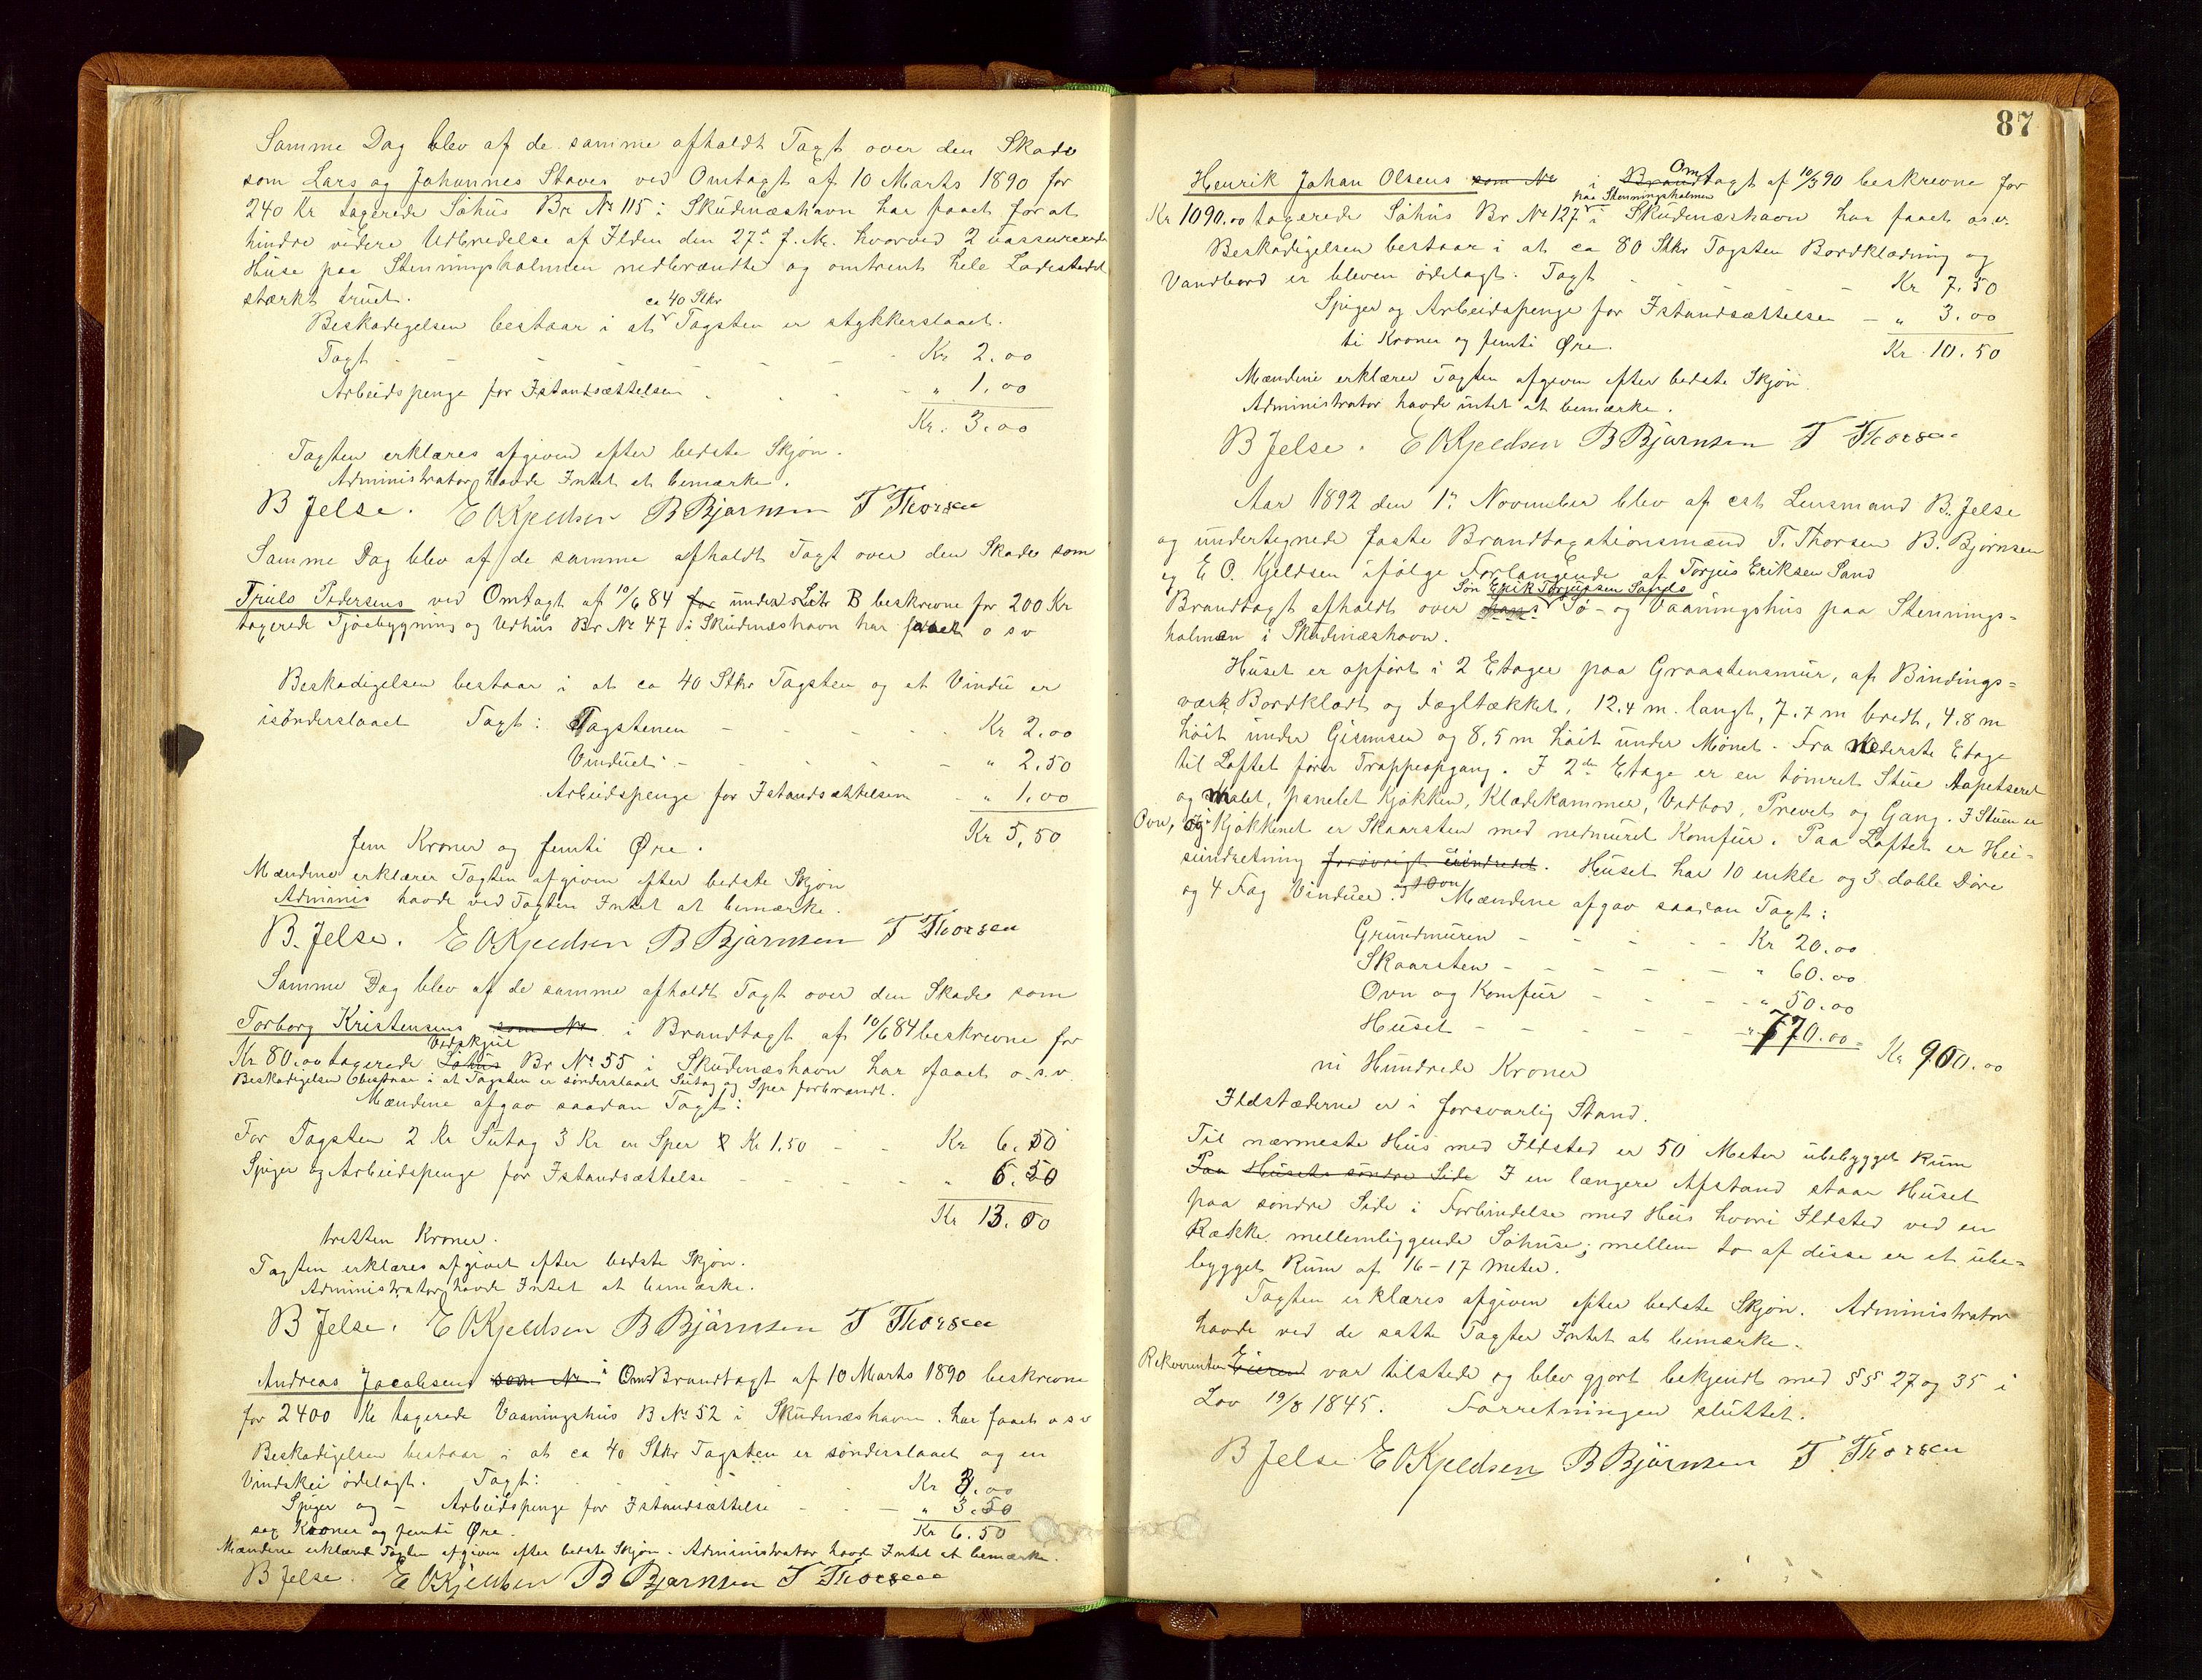 Samme Dag blev af de samme afholdt Taxt over den Skade
som Lars og Johannes Staves ved Omtaxt af 10 Marts 1890 for
240 Kr taxerede Söhus Br No 115 i Skudenæshavn har faaet for at
hindre videre Udbredelse af Ilden den 27de f. M. hvorved 2 uassurerede
Huse paa Stenningsholmen nedbrændte og omtrent hele Ladestedet
stærkt truet.
ca 40 Stkr
Beskadigelsen bestaar i at Tagsten er stykkerslaaet.
Taxt - - - - - Kr 2.00
Arbeidspenge for Istandsættelsen - - - " 1.00
Kr. 3.00
Taxten erklæres afgiven efter bedste Skjøn.
Administrator havde Intet at bemærke.
B Jelse. E O Kjeldsen B Bjørnsen T Thorsen
Samme Dag blev af de samme afholdt Taxt over den Skade som
Truls Pedersens ved Omtaxt af 10/6 84 for under Litr B beskrevne for 200 Kr
taxerede Sjøbygning og Udhus Br No 47 i Skudenæshavn har faaet o s v
Beskadigelsen bestaar i at ca 40 Stkr Tagsten og et Vindu er
isønderslaaet Taxt: Tagstenen - - - Kr 2.00
Vinduet - - - - " 2.50
Arbeidspenge for Istandsættelsen - " 1.00
Kr 5,50
fem Kroner og femti Øre.
Mændene erklærer Taxten afgiven efter bedste Skjøn
Adminis havde ved Taxten Intet at bemærke.
B. Jelse. E O Kjeldsen B Bjørnsen T Thorsen
Samme Dag blev af de samme afholdt Taxt over den Skade som
Torborg Kristensens som No i Brandtaxt af 10/6 84 beskrevne for
Vedskjul
Kr 80.00 taxerede Söhus Br No 55 i Skudenæshavn har faaet o.s.v.
Beskadigelsen bestaar i at Tagsten er sønderslaaet Sutag og Sper forbrændt.
Mændene afgav saadan Taxt:
For Tagsten 2 Kr Sutag 3 Kr en Sper Kr 1.50 - - Kr 6.50
Spiger og Arbeidspenge for Istandsættelse - - - " 6.50
Kr 13.00
tretten Kroner.
Taxten erklæres afgivet efter bedste Skjøn.
Administrator havde Intet at bemærke.
B Jelse. E O Kjeldsen B Bjørnsen T Thorsen
Andreas Jacobsens som No i Om Brandtaxt af 10 Marts 1890 beskrevne
for 2400 Kr taxerede Vaaningshus B No 52 i Skudenæshavn. har faaet o s v
Beskadigelsen bestaar i at ca 40 Stkr Tagsten er sønderslaaet og en
Vindskei ødelagt. Taxt: - - Kr 3.00
Spiger og - Arbeidspenge for Istandsættelse - - " 3.50
sex Kroner og femti Øre. Kr 6.50
Mændene erklærede Taxten afgiven efter bedste Skjøn - Administrator havde Intet at bemærke.
B Jelse. E O Kjeldsen B Bjørnsen T Thorsen
87
Om
Henrik Johan Olsens som No i Brandtaxt af 10/3 90 beskrevne for
paa Stenningsholmen
Kr 1090.00 taxerede Söhus Br No 127 i Skudenæshavn har faaet o.s.v.
Beskadigelsen bestaar i at ca 80 Stkr Tagsten Bordklædning og
Vandbord er bleven ødelagt. Taxt - - - Kr 7.50
Spiger og Arbeidspenge for Istandsættelsen - " 3.00
ti Kroner og femti Øre. Kr 10.50
Mændene erklærer Taxten afgiven efter bedste Skjøn.
Administrator havde intet at bemærke.
B Jelse. E O Kjeldsen B Bjørnsen T Thorsen
Aar 1892 den 1ste November blev af cst Lensmand B. Jelse
og undertegnede faste Brandtaxationsmænd T. Thorsen B. Bjørnsen
og E O. Kjeldsen ifølge Forlangende af Torjus Eriksen Sand
Søn Erik Torjussen Sands
Brandtaxt afholdt over hans Sö- og Vaaningshus paa Stennings=
holmen i Skudenæshavn.
Huset er opført i 2 Etager paa Graastensmur, af Bindings=
værk Bordklædt og Tagltækket, 12.4 m. langt, 7.7 m bredt, 4.8 m
høit under Gesimsen og 8.5 m høit under Mønet. Fra nederste Etage
til Loftet fører Trappeopgang. I 2den Etage er en tømret Stue tapetseret
og malet, panelet Kjøkken, Klædekammer, Vedbod, Prevet og Gang. I Stuen er
Ovn, og i Kjøkkenet er Skaarsten med nedmuret Komfur. Paa Loftet er Hei-
seindretning forøvrigt uindredet. Huset har 10 enkle og 3 doble Døre
og 4 Fag Vinduer. Mændene afgav saadan Taxt:
Grundmuren - - - - Kr 20.00
Skaarsten - - - - - " 60.00
Ovn og Komfur - - - - " 50.00
Huset - - - - - " 770.00 = Kr 900.00
ni Hundrede Kroner
Ildstæderne er i forsvarlig Stand.
Til nærmeste Hus med Ildsted er 50 Meter ubebygget Rum
Paa Husets søndre Side I en længere Afstand staar Huset
paa søndre Side i Forbindelse med Hus hvori Ildsted ved en
Række mellemliggende Söhuse; mellem to af disse er et ube=
bygget Rum af 16-17 Meter.
Taxten erklæres afgiven efter bedste Skjøn. Administrator
havde ved de satte Taxter Intet at bemærke.
Rekvirenten Eieren var tilstede og blev gjort bekjendt med §§ 27 og 35 i
Lov 19/8 1845. Forretningen sluttet.
B Jelse E O Kjeldsen B Bjørnsen T Thorsen